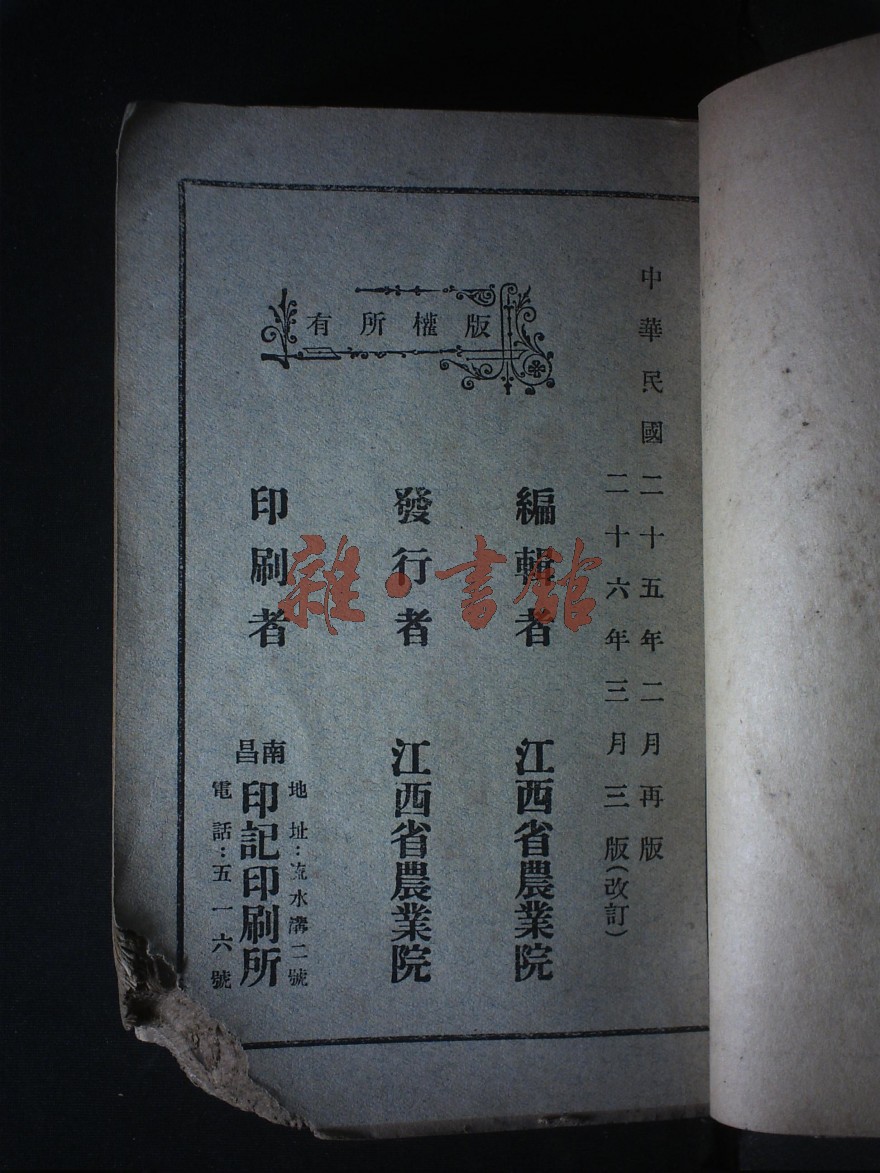 中華民國二十五年二月再版
二十六年三月三版(改訂)
版權所有
編輯者 江西省農業院
發行者 江西省農業院
印刷者 南昌印記印刷所
地址:流水溝二號
電話:五一六號
雜·書館